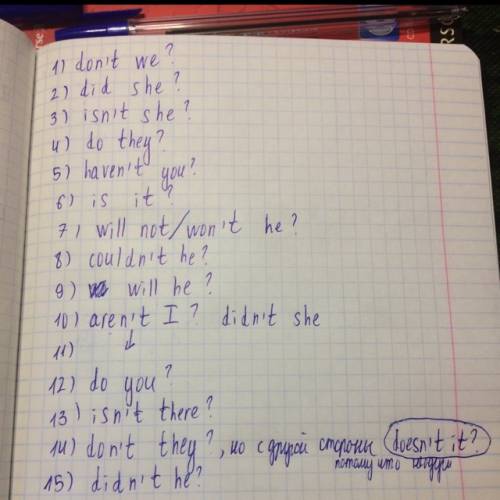 1) don't we?
2) did she?
3) isn't she?
4) do they?
5) haven't you?
6) is it?
7) will not/won't he?
8) couldn't he?
9) will he?
10) aren't I? didn't she
11)
12) do you?
13) isn't there?
14) don't they?, но с другой стороны doesn't it?
потому что
15) didn't he?